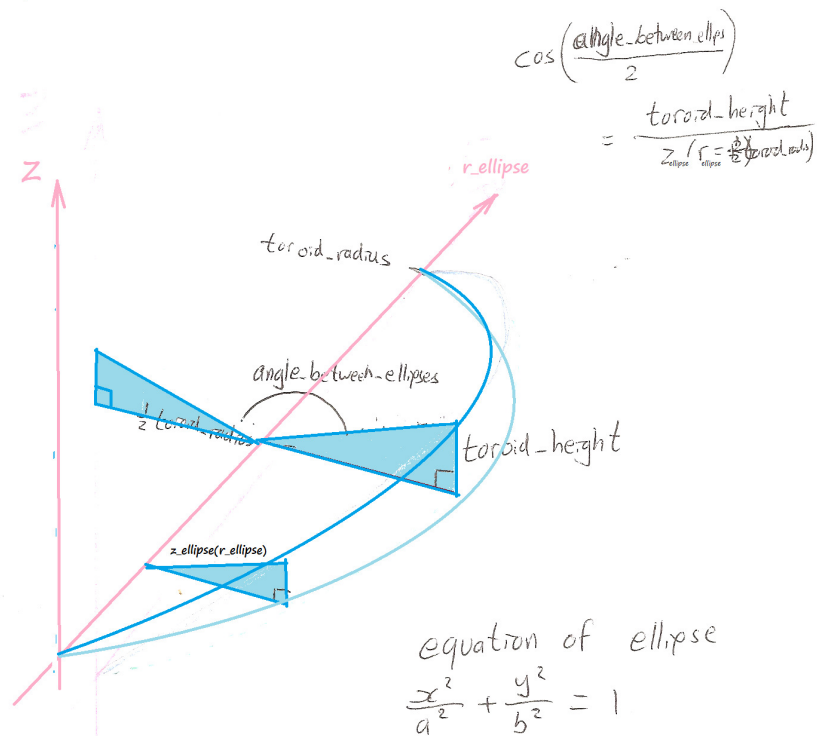 cos(angle_between_ellips / 2)
= toroid_height / z_ellipse(r_ellipse = toroid_radis)
Z
r_ellipse
toroid_radius
angle_between_ellipses
1/2 toroid_radius
toroid_height
z_ellipse(r_ellipse)
equation of ellipse
x²/a² + y²/b² = 1